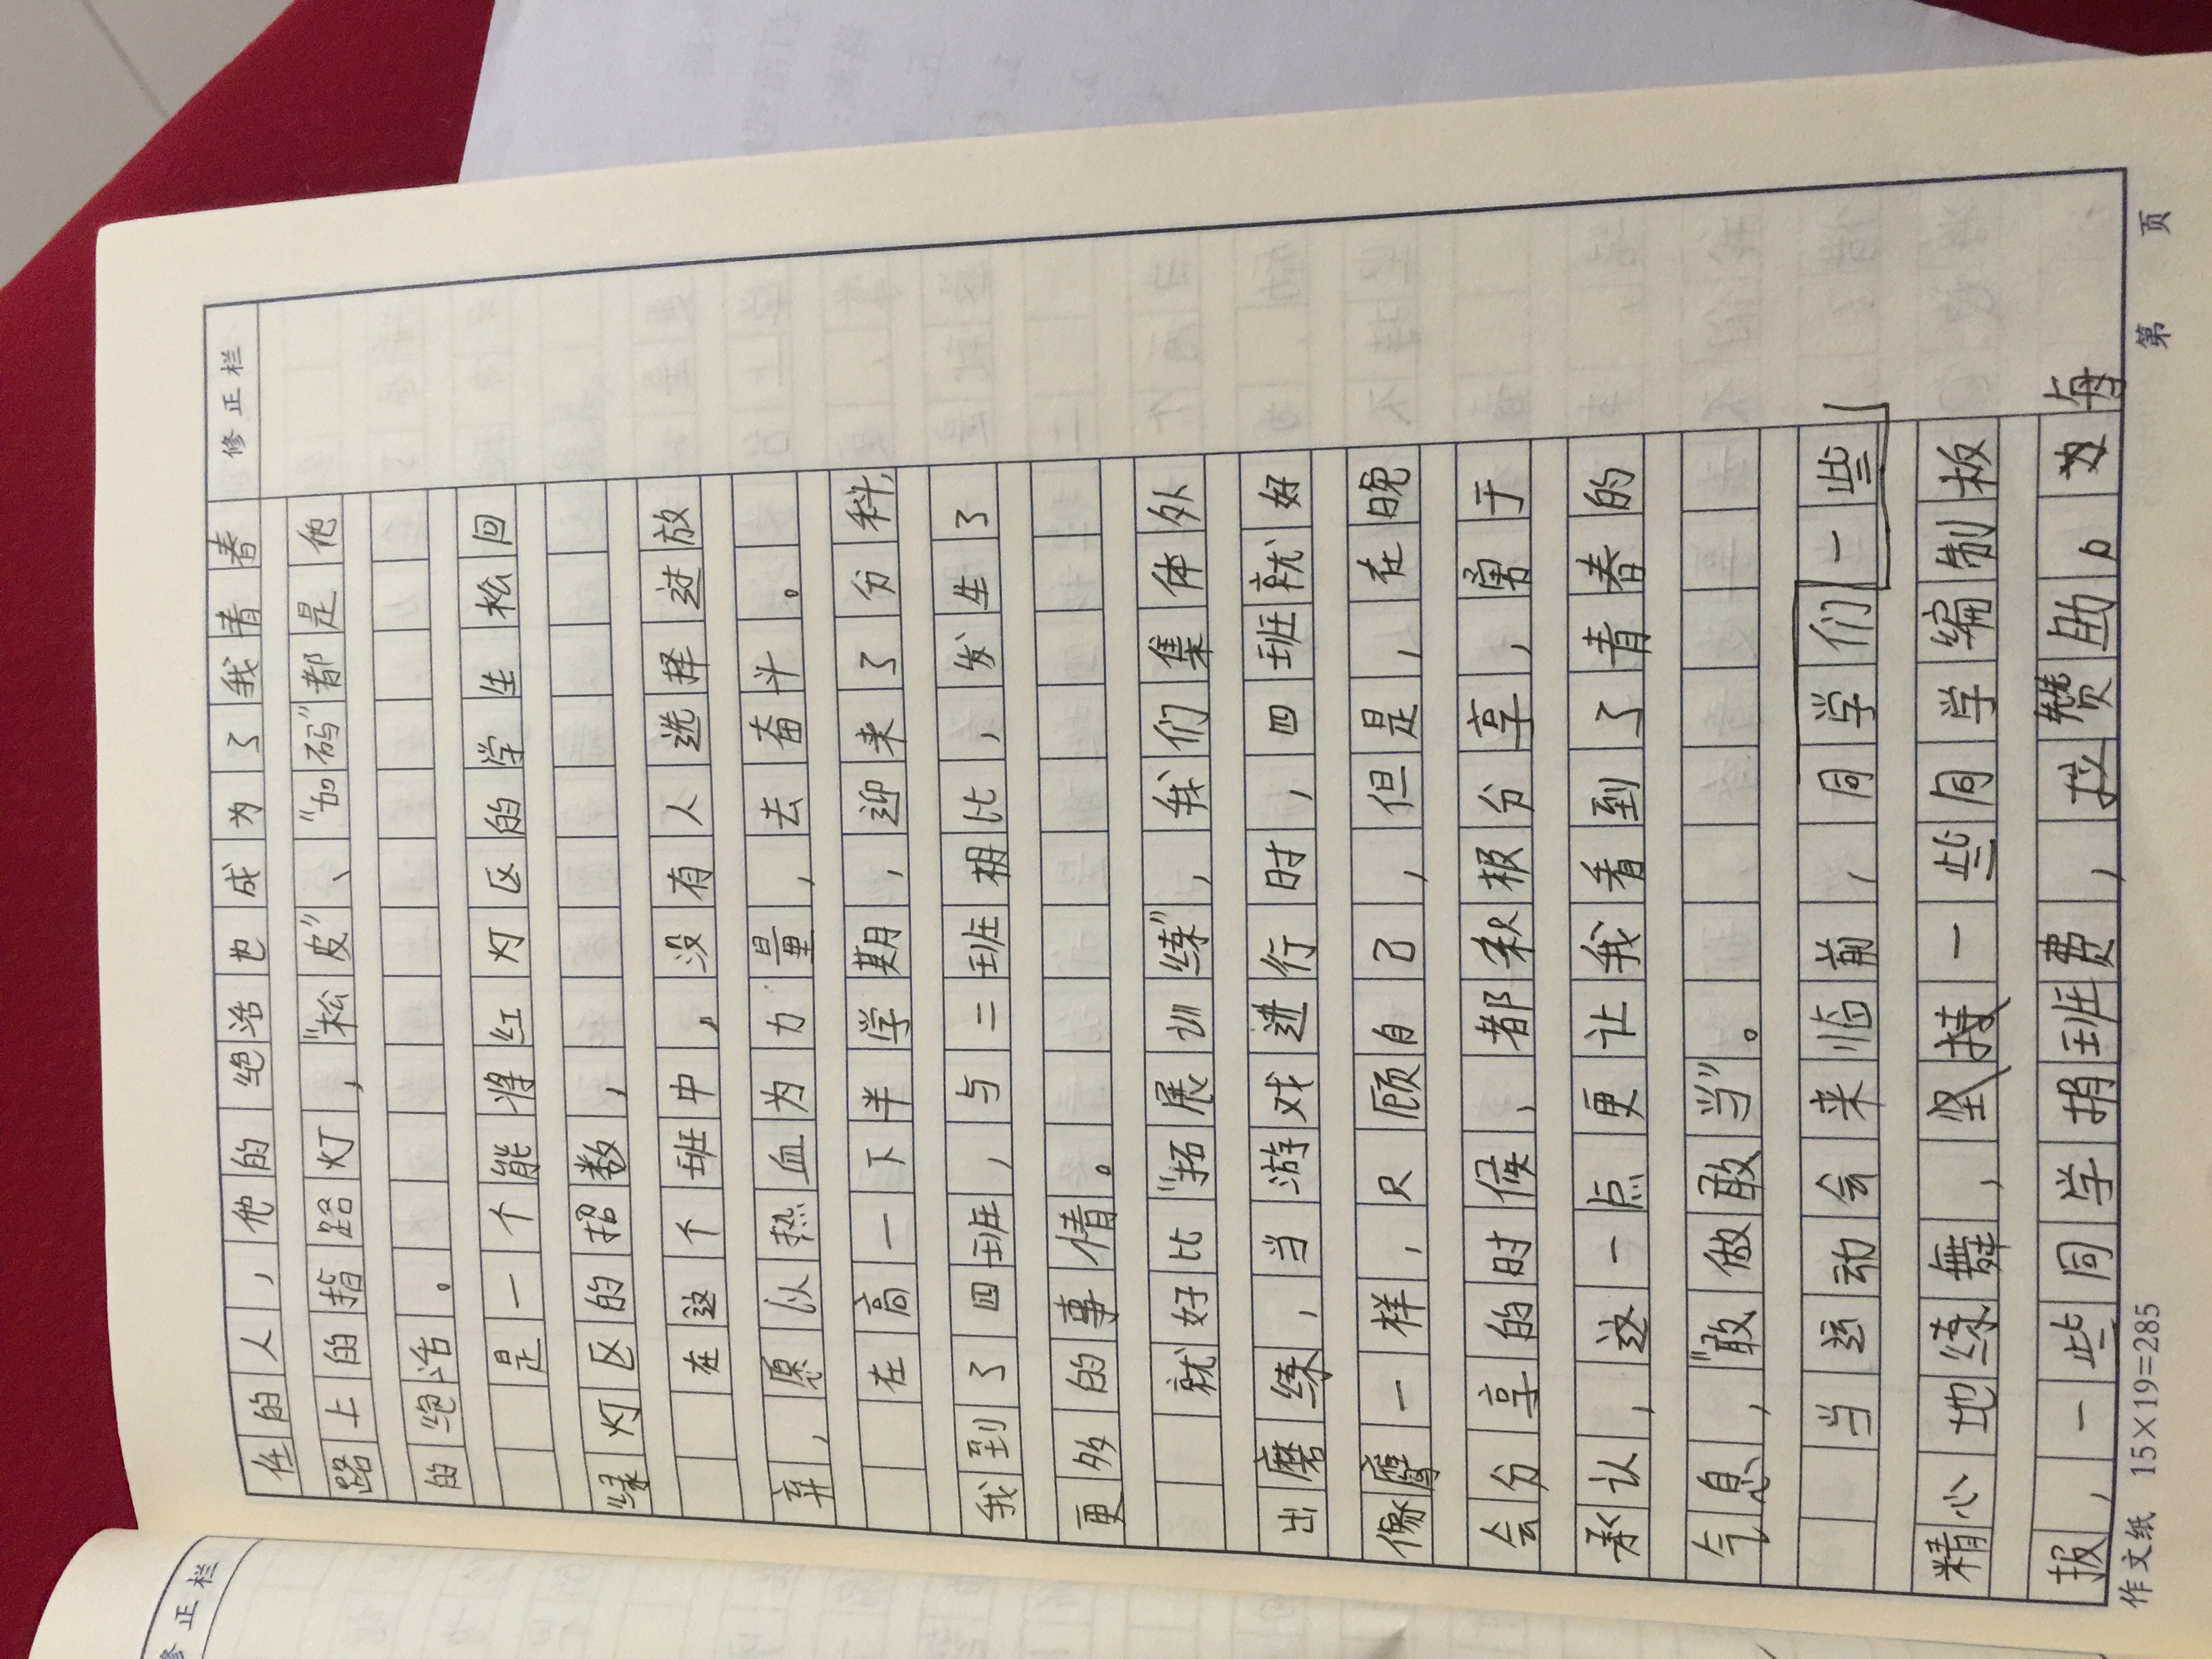 修正栏
任的人，他的绝活也成为了我青春
路上的指路灯，“松皮”、“加码”都是他
的绝活。
是一个能将红灯区的学生松回
绿灯区的招数，
在这个班中，没有人选择放
弃，愿以热血为力量，去奋斗。
在高一下半学期，迎来了分科，
我到了四班，与二班相比，发生了
更多的事情。
就好比“拓展训练”，我们集体外
出磨练，当游戏进行时，四班就好
像鹰一样，只顾自己，但是，在晚
会分享的时候，都积极分享，勇于
承认，这一点更让我看到了青春的
气息，“敢做敢当”。
当运动会来临前，同学们一些
精心地练舞，坚持一些同学编制板
报，一些同学捐班费，拉赞助。为每
作文纸 15×19=285 第 页
修正栏